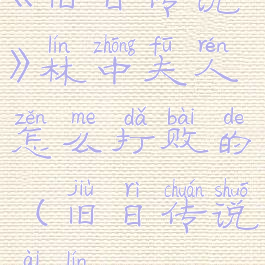 《旧日传说
lín zhōng fū rén
》林中夫人
zěn me dǎ bài de
怎么打败的
jiù rì chuán shuō
（旧日传说
lín